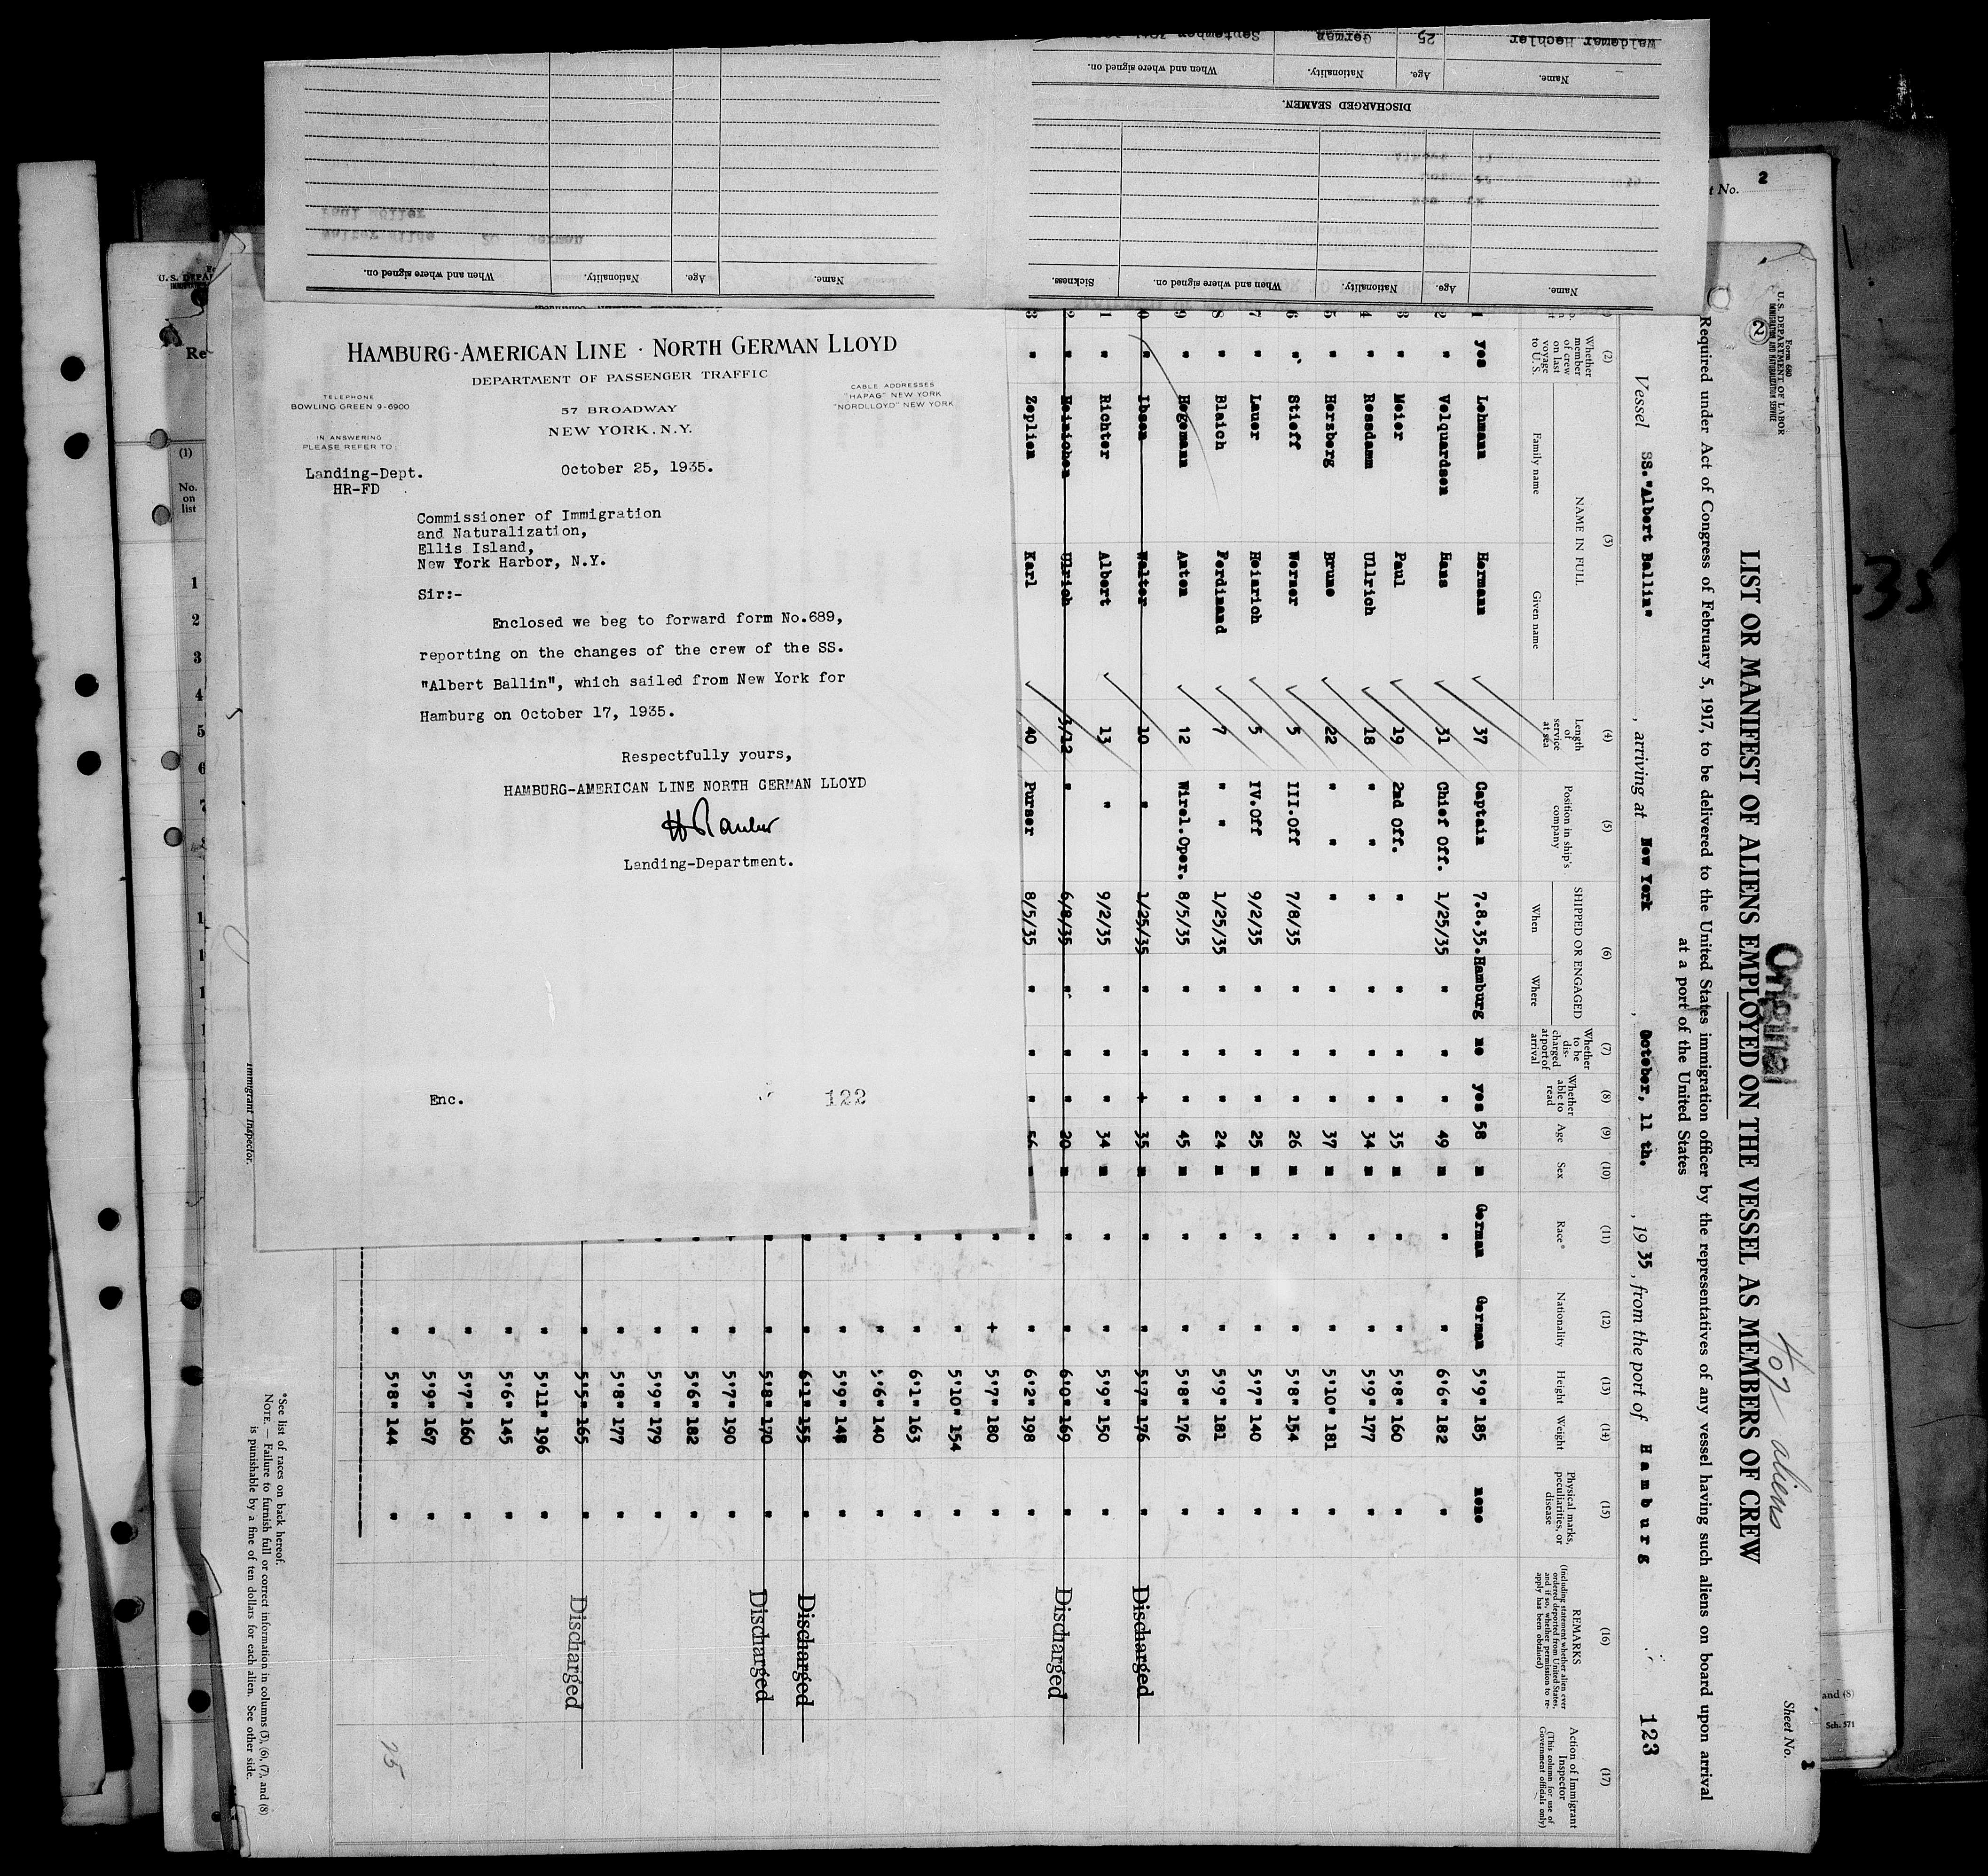 HAMBURG-AMERICAN LINE · NORTH GERMAN LLOYD
DEPARTMENT OF PASSENGER TRAFFIC
TELEPHONE
BOWLING GREEN 9-6900
57 BROADWAY
NEW YORK, N.Y.
CABLE ADDRESSES
"HAPAG" NEW YORK
"NORDLLOYD" NEW YORK
IN ANSWERING
PLEASE REFER TO
Landing-Dept.
HR-FD
October 25, 1935.
Commissioner of Immigration
and Naturalization,
Ellis Island,
New York Harbor, N.Y.
Sir:-
Enclosed we beg to forward form No.689,
reporting on the changes of the crew of the SS.
"Albert Ballin", which sailed from New York for
Hamburg on October 17, 1935.
Respectfully yours,
HAMBURG-AMERICAN LINE NORTH GERMAN LLOYD
Landing-Department.
Enc.
122
Waldemar Hechler 25 German September
Name. Age. Nationality. When and where signed on.
DISCHARGED SEAMEN.
Name. Age. Nationality. When and where signed on. Sickness.
Name. Age. Nationality. When and where signed on.
Form 680
U. S. DEPARTMENT OF LABOR
IMMIGRATION AND NATURALIZATION SERVICE
2
Original
Hog aliens
Sheet No. 1
LIST OR MANIFEST OF ALIENS EMPLOYED ON THE VESSEL AS MEMBERS OF CREW
Required under Act of Congress of February 5, 1917, to be delivered to the United States immigration officer by the representatives of any vessel having such aliens on board upon arrival
at a port of the United States
Vessel SS."Albert Ballin", arriving at New York, October, 11 th., 1935, from the port of Hamburg 123
(2) (3) (4) (5) (6) (7) (8) (9) (10) (11) (12) (13) (14) (15) (16) (17)
Whether member of crew on last voyage to U.S.
NAME IN FULL
Family name Given name
Length of service at sea
Position in ship's company
SHIPPED OR ENGAGED
When Where
Whether to be discharged at port of arrival
Whether able to read
Age Sex Race* Nationality Height Weight
Physical marks, peculiarities, or disease
REMARKS
(Including statement whether alien ever ordered deported from United States, and if so, whether permission to re-apply has been obtained)
Action of Immigrant Inspector
(This column for use of Government officials only)
1 yes Lehmann Hermann 37 Captain 7.8.35. Hamburg no yes 58 m German German 5'9" 185 none
2 " Velquardsen Hans 31 Chief Off. 1/25/35 " " " 49 m " " 6'6" 182 "
3 " Meier Paul 19 2nd Off. " " " " 35 m " " 5'8" 160 "
4 " Rossdamm Ullrich 18 " " " " " " 34 m " " 5'9" 177 "
5 " Hersberg Bruno 22 " " " " " " 37 m " " 5'10" 181 "
6 " Stieff Werner 5 III.Off 7/8/35 " " " 26 m " " 5'8" 154 "
7 " Lauer Heinrich 5 IV.Off 9/2/35 " " " 25 m " " 5'7" 140 "
8 " Blaich Ferdinand 7 " " 1/25/35 " " " 24 m " " 5'9" 181 "
9 " Hegemann Anton 12 Wirel.Oper. 8/5/35 " " " 45 m " " 5'8" 176 "
0 " Ibsen Walter 10 " 1/25/35 " " + 35 m " " 5'7" 176 " Discharged
1 " Richter Albert 13 " 9/2/35 " " " 34 m " " 5'9" 150 "
2 " Heinichen Ulrich 3/12 " 6/8/35 " " " 20 m " " 6'0" 169 " Discharged
3 " Zeplien Karl 40 Purser 8/5/35 " " " 56 m " " 6'2" 198 "
+ 5'7" 180 "
" 5'10" 154 "
" 6'1" 163 "
" 5'6" 140 "
" 5'9" 148 "
" 6'1" 155 " Discharged
" 5'8" 170 " Discharged
" 5'7" 190 "
" 5'6" 182 "
" 5'9" 179 "
" 5'8" 177 "
" 5'5" 165 " Discharged
" 5'11" 196 "
" 5'6" 145 "
" 5'7" 160 "
" 5'9" 167 "
" 5'8" 144 "
25
*See list of races on back hereof.
NOTE.—Failure to furnish full or correct information in columns (3), (6), (7), and (8)
is punishable by a fine of ten dollars for each alien. See other side.
Immigrant Inspector.
U. S. DEPAR
Re
(1)
No.
on
list
1
2
3
4
5
6
7
8
t No. 2
-35
and (8)
Sch. 571